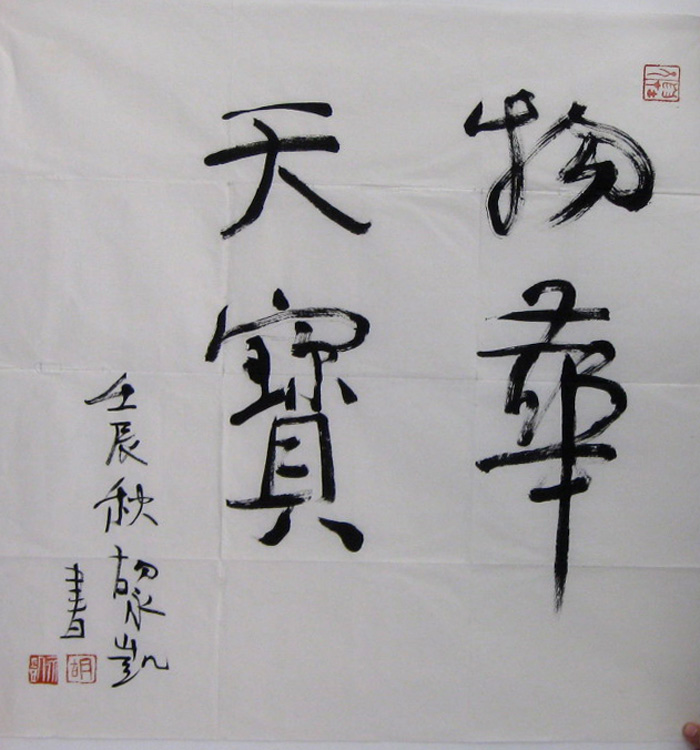 物華
天寶
壬辰秋胡永凱
書
胡